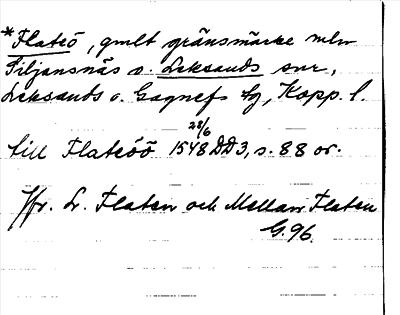 *Flateö, gmlt gränsmärke mln
Siljansnäs o. Leksands snr,
Leksands o. Gagnefs tg, Kopp. l.
till Flateöö 1548 28/6 DD3, s. 88 or.
Jfr. L. Flaten och Mellan Flaten
G. 96.